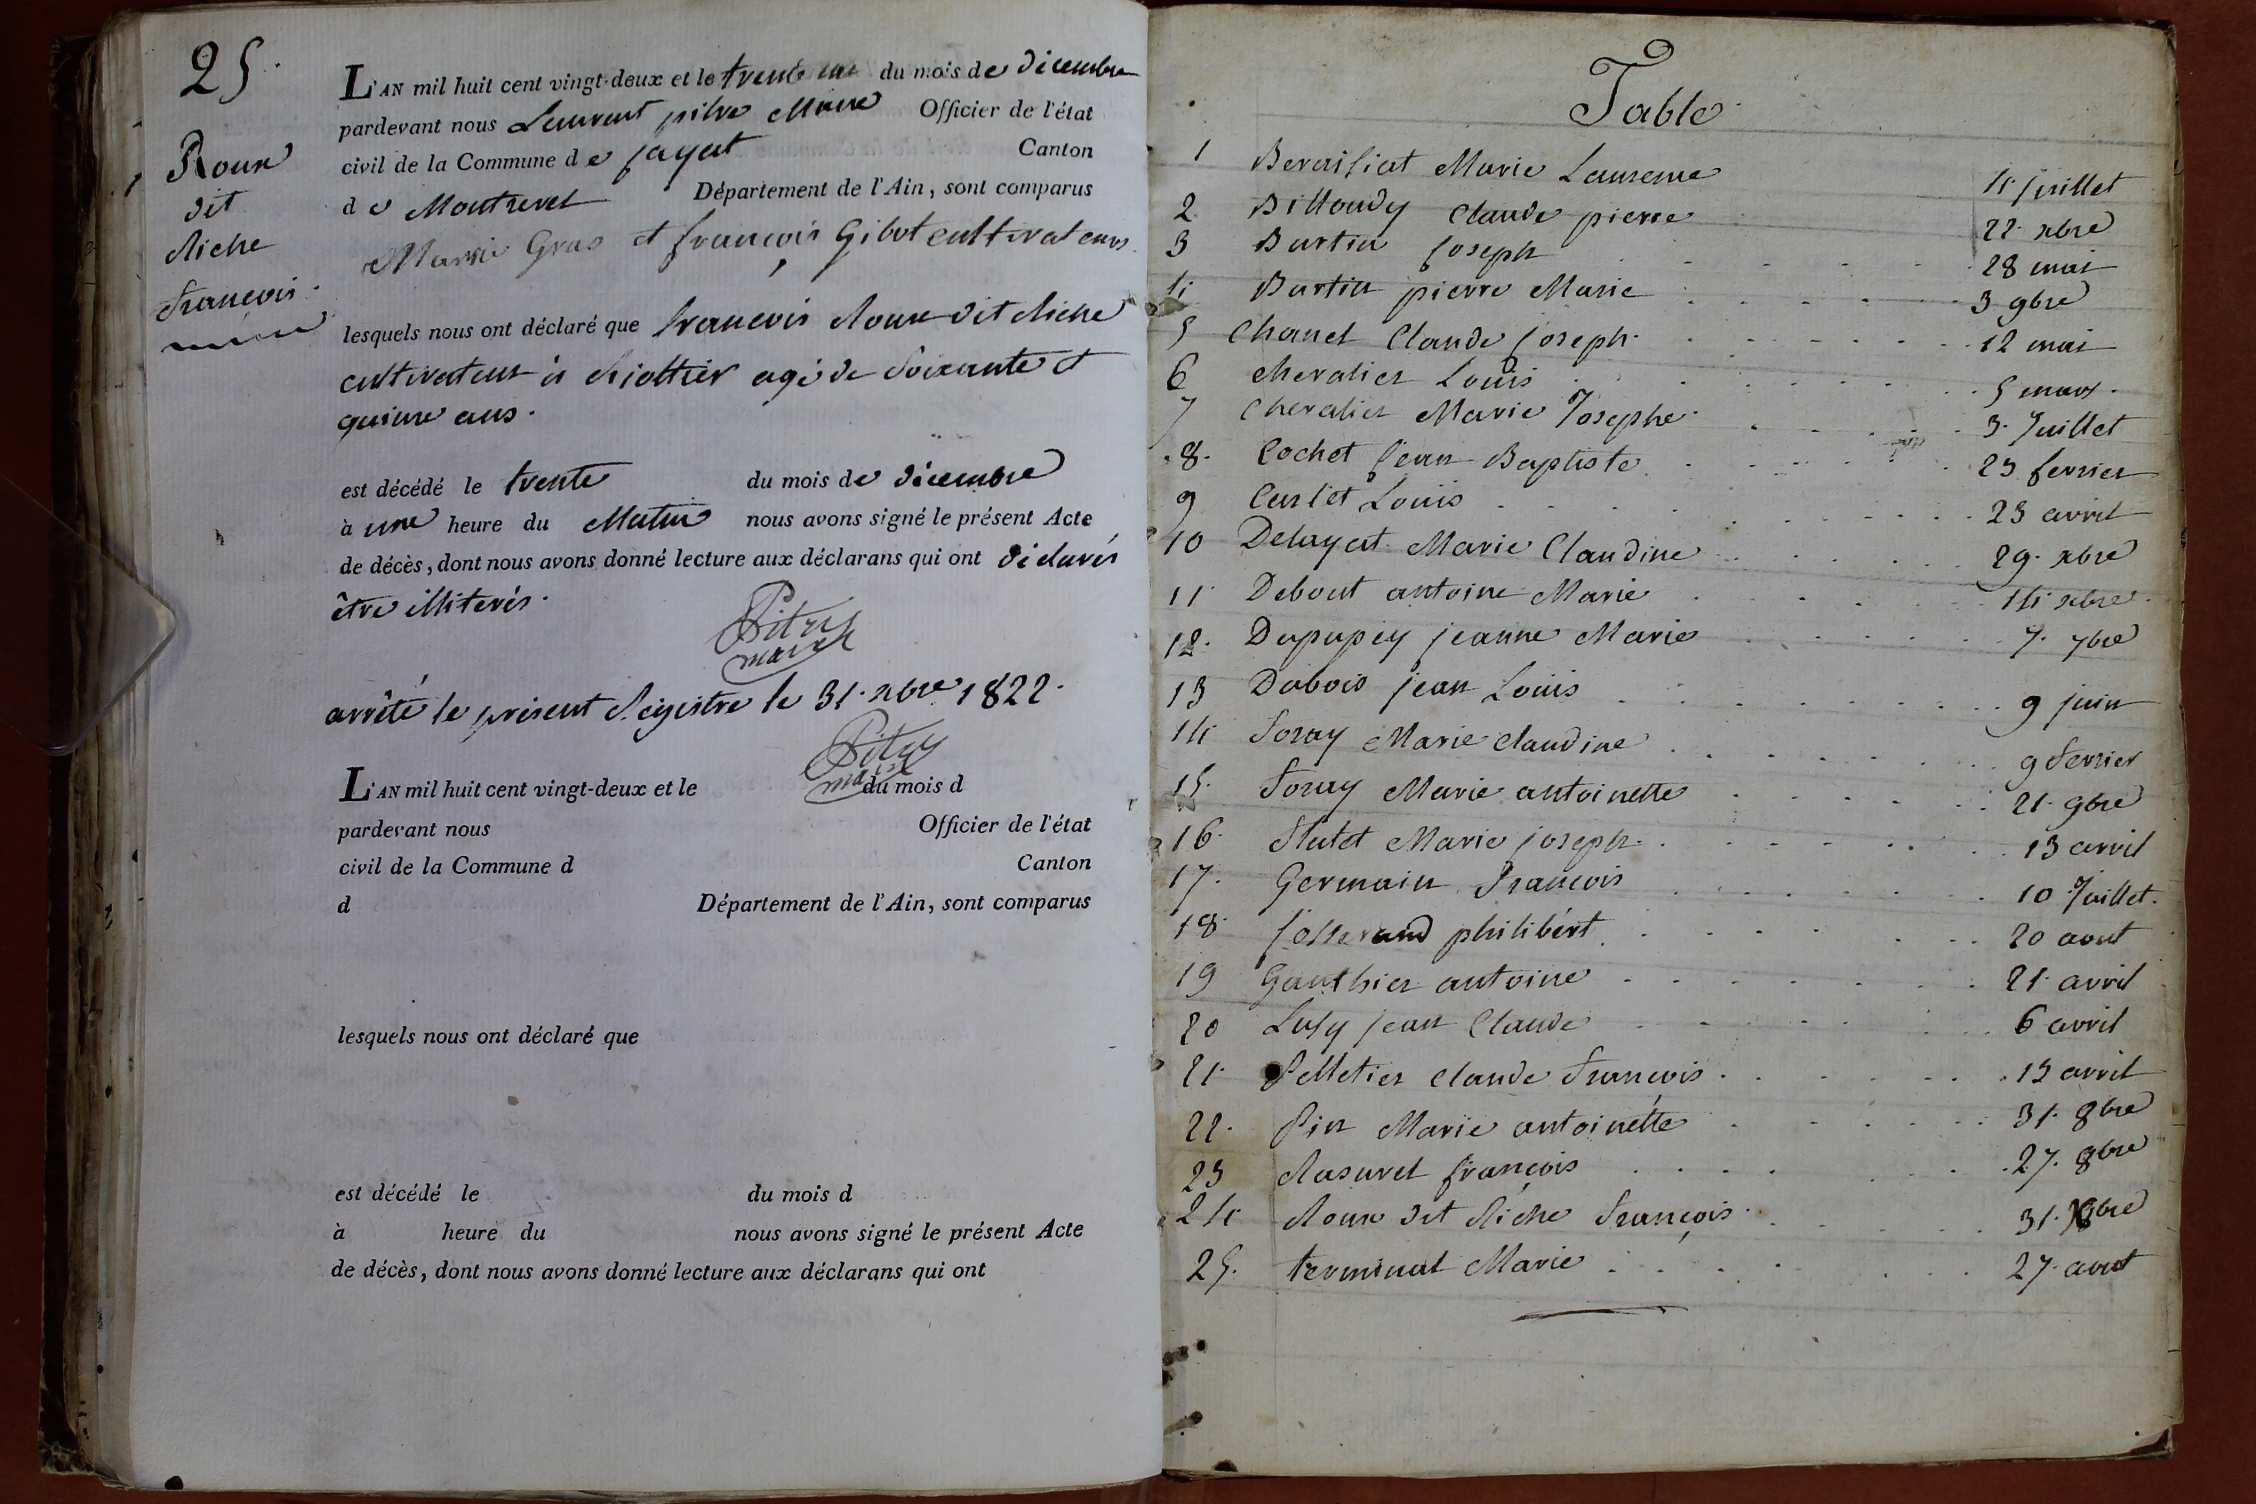 25.
Roux
dit
Riche
francois
L'AN mil huit cent vingt-deux et le trente un du mois de décembre
pardevant nous Laurent pitre Maire Officier de l'état
civil de la Commune de jayat Canton
de Montrevel Département de l'Ain, sont comparus
Marie Gras et françois Gibot cultivateurs
lesquels nous ont déclaré que françois Roux dit Riche
cultivateur à agé de soixante et
quinze ans.
est décédé le trente du mois de décembre
à une heure du Matin nous avons signé le présent Acte
de décès, dont nous avons donné lecture aux déclarans qui ont déclarés
être illiterés.
Pitre
maire
arrêté le présent Régistre le 31. xbre 1822.
Pitre
maire
L'AN mil huit cent vingt-deux et le du mois d
pardevant nous Officier de l'état
civil de la Commune d Canton
d Département de l'Ain, sont comparus
lesquels nous ont déclaré que
est décédé le du mois d
à heure du nous avons signé le présent Acte
de décès, dont nous avons donné lecture aux déclarans qui ont
Table
1 Beraisiat Marie Laurence 4 juillet
2 Billoudy Claude pierre 22. xbre
3 Burtin joseph 28 mai
4 Burtin pierre Marie 3 9bre
5 Chanel Claude joseph 12 mai
6 chevalier Louis 5 mars
7 Chevalier Marie Josephe 3. Juillet
8. Cochet jean Baptiste 23 fevrier
9 Curlet Louis 23 avril
10 Delayat Marie Claudine 29. xbre
11 Debout antoine Marie 14 xbre
12. Dupupey jeanne Marie 7. 7bre
13 Dubois jean Louis 9 juin
14 foray Marie claudine 9 fevrier
15. foray Marie antoinette 21. 9bre
16. flutet Marie joseph 13 avril
17. Germain françois 10 Juillet.
18 josserand philibért 20 aout
19 Gauthier antoine 21. avril
20 Lusy jean Claude 6 avril
21. Pelletier claude françois 13 avril
22. Pin Marie antoinétte 31. 8bre
23 Rasurel françois 27. 8bre
24 Roux dit Riche françois 31. Xbre
25. terminal Marie 27. aout